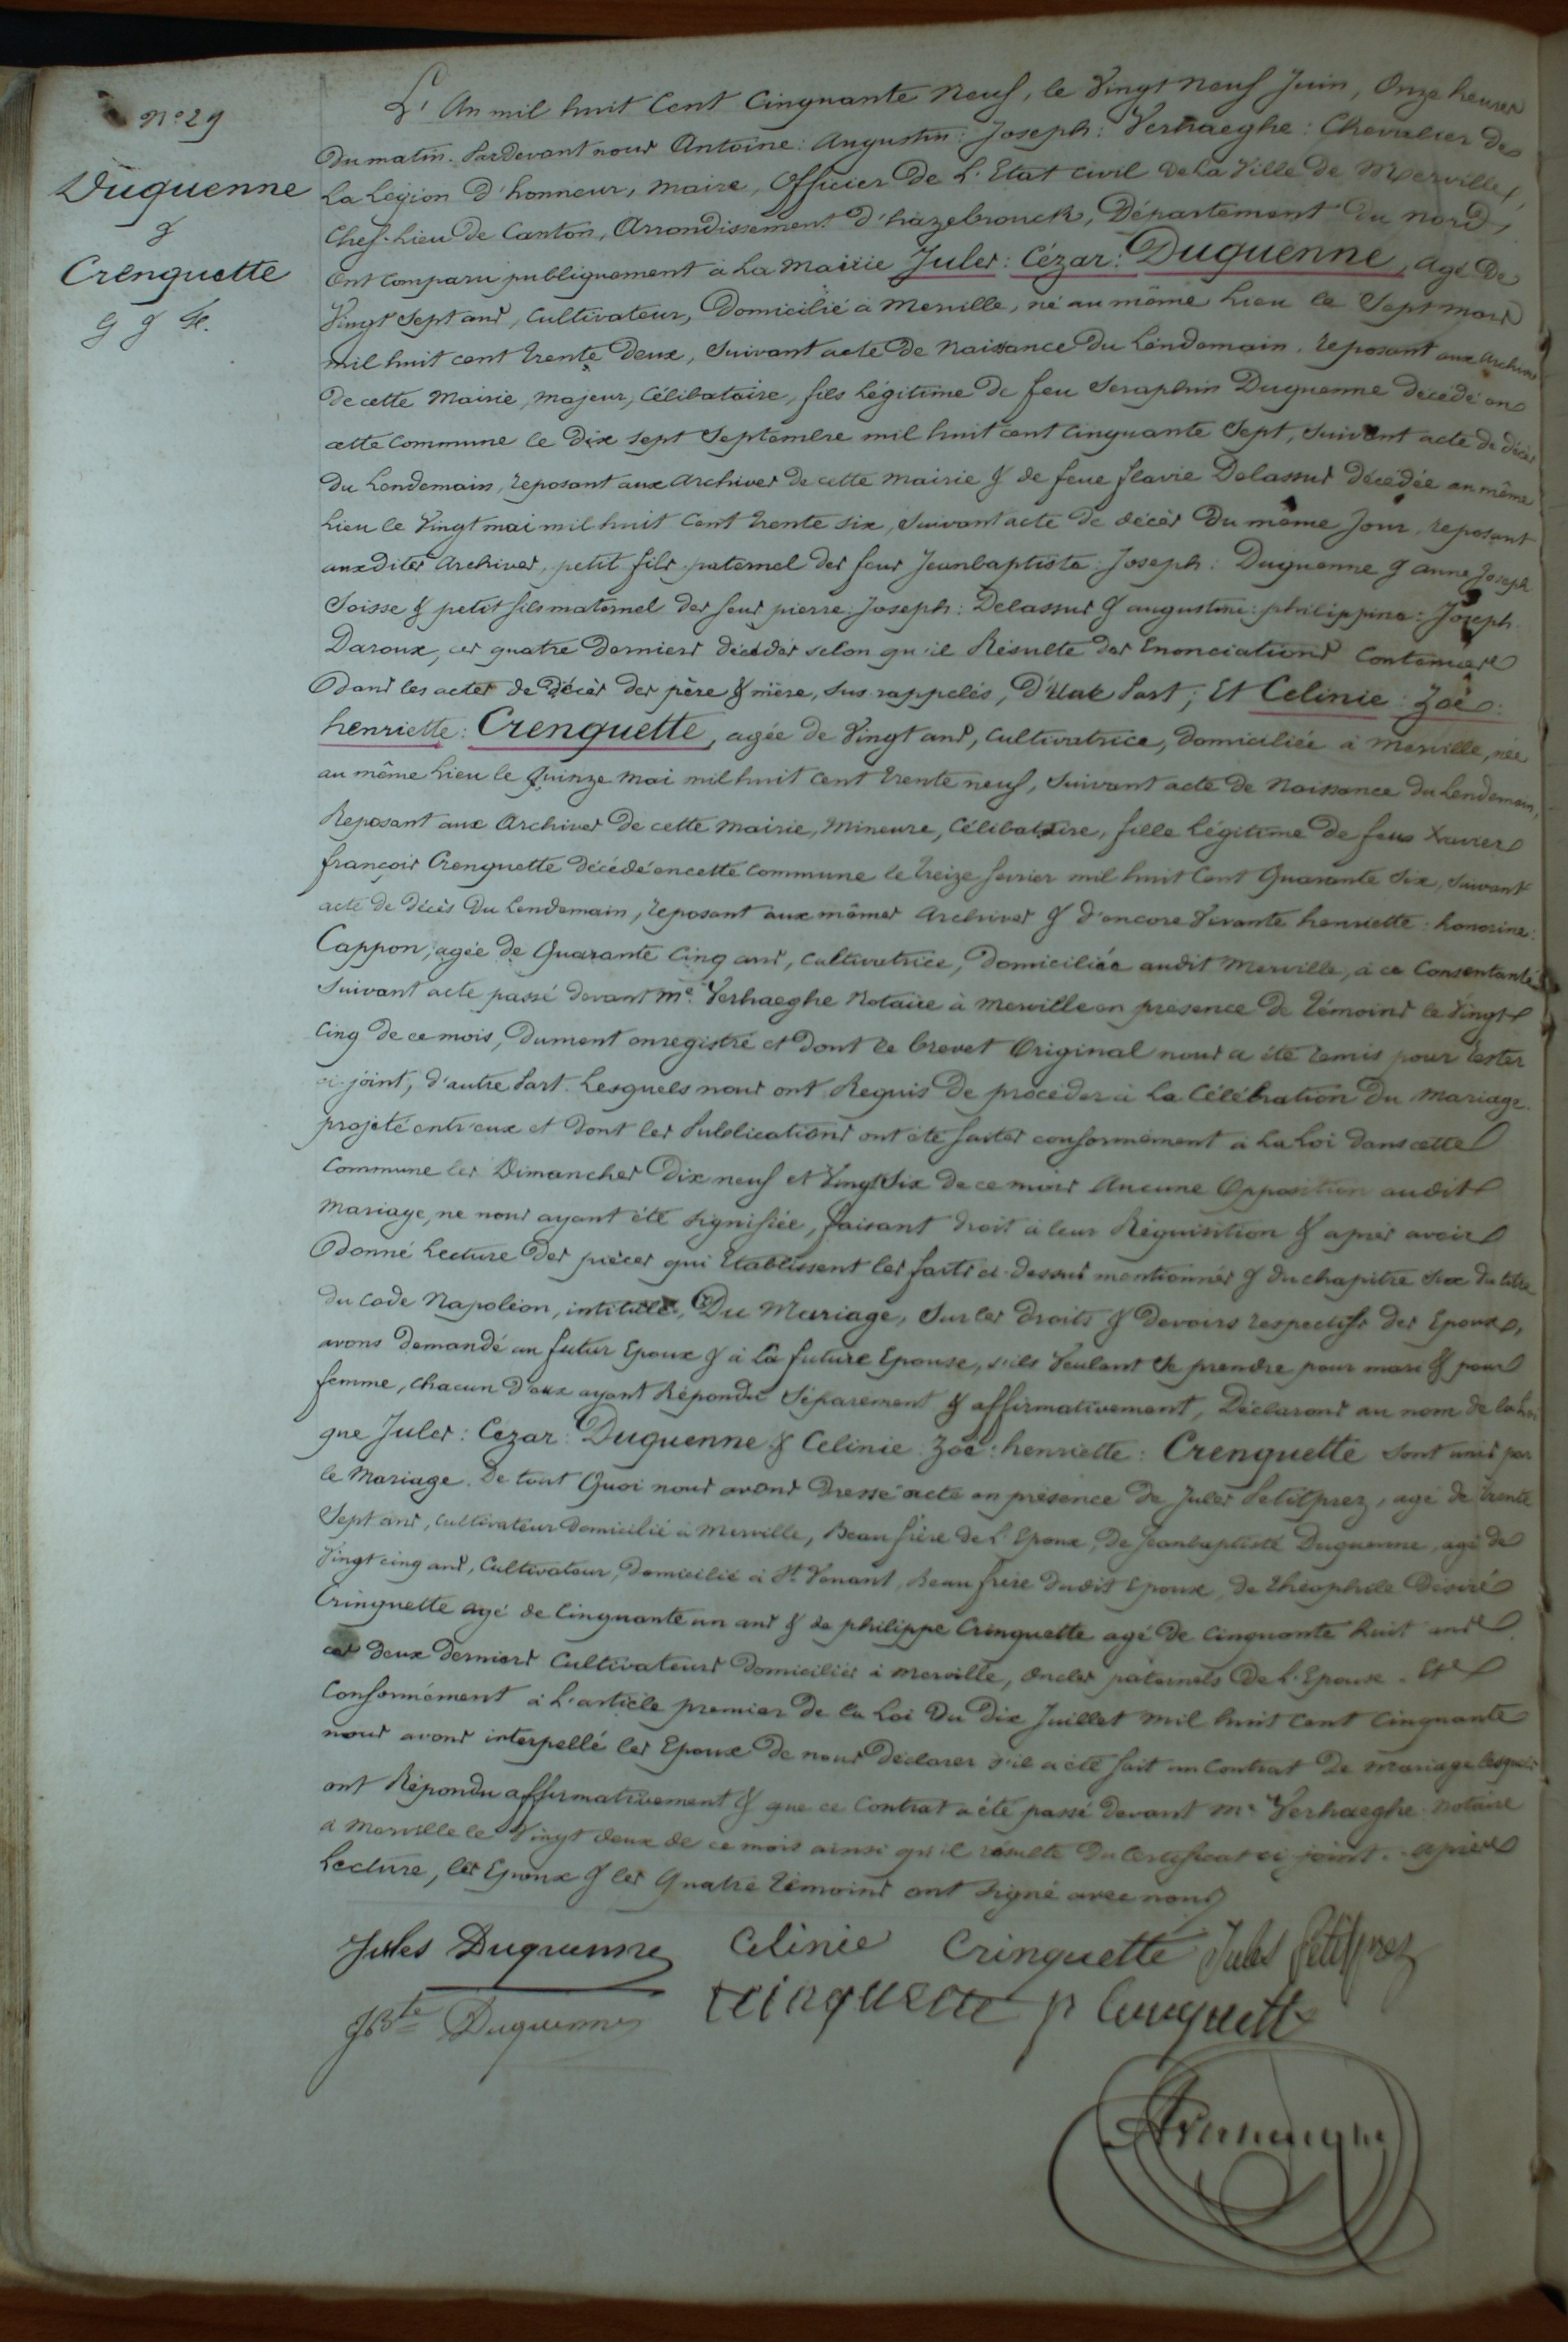 N° 29
Duquenne
&
Crenquette
G & F.
L'An mil huit Cent Cinquante Neuf, le Vingt neuf Juin, Onze heures
Du matin. Pardevant nous Antoine: Augustin: Joseph: Verhaeghe: Chevalier de
La Légion d'honneur, Maire, Officier de L'Etat Civil de la Ville de Merville,
Chef-Lieu de Canton, Arrondissement d'hazebrouck, Département du Nord,
Ont comparu publiquement à La Mairie Jules: Cézar: Duquenne, agé de
Vingt Sept ans, Cultivateur, Domicilié à Merville, né au même Lieu le Sept mars
mil huit cent trente Deux, suivant acte de Naissance du Lendemain. reposant aux archives
de cette Mairie, majeur, Célibataire, fils Légitime de feu Seraphin Duquenne décédé en
cette Commune le Dix sept Septembre mil huit cent cinquante Sept, suivant acte de décès
du Lendemain, reposant aux archives de cette mairie & de feue flavie Delassus décédée au même
Lieu le Vingt mai mil huit Cent trente six, suivant acte de décès Du même Jour, reposant
auxdites archives, petit fils paternel des feus Jeanbaptiste: Joseph: Duquenne & anne Joseph
Soisse & petit fils maternel des feus pierre: Joseph: Delassus & augustine: philippine: Joseph.
Daroux, ces quatre derniers décédés selon qu'il Résulte des Enonciations Contenues
Dans les actes de décès des père & mère, sus rappelés, D'une Part; Et Celinie: Zoë:
henriette: Crenquette, agée de Vingt ans, Cultivatrice, domiciliée à Merville, née
au même Lieu le Quinze Mai mil huit Cent trente neuf, suivant acte de Naissance du Lendemain,
Reposant aux Archives De cette Mairie, Mineure, Célibataire, fille Légitime de feu Xavier
françois Crenquette décédé en cette Commune le treize février mil huit Cent Quarante six, suivant
acte de décès du Lendemain, reposant aux mêmes Archives & d'encore Vivante henriette: honorine:
Cappon, agée de Quarante Cinq ans, Cultivatrice, domiciliée audit Merville, à ce Consentante
Suivant acte passé devant Me. Verhaeghe Notaire à Merville en présence de témoins le Vingt
Cinq de ce mois, Dument enregistré et Dont le brevet Original nous a été remis pour rester
ci-joint, d'autre Part. Lesquels nous ont Requis De procéder à La Célébration du Mariage
projeté entr'eux et Dont les Publications ont été faites conformément à La Loi dans cette
Commune les Dimanches Dix neuf et Vingt Six de ce mois Aucune Opposition audit
Mariage, ne nous ayant été signifiée, faisant droit à leur Réquisition & après avoir
Donné Lecture Des pièces qui Etablissent les faits ci-dessus mentionnés & du chapitre Six du titre
du Code Napoléon, intitulé, Du Mariage, Sur les Droits & Devoirs respectifs des Epoux,
avons demandé au futur Epoux & à La future Epouse, s'ils Veulent se prendre pour mari & pour
femme, chacun d'eux ayant Répondu Séparement & affirmativement, Déclarons au nom de la Loi
que Jules: Cézar: Duquenne & Celinie: Zoë: henriette: Crenquette sont unis par
le Mariage. De tout Quoi nous avons Dressé acte en présence de Jules Petitprez, agé de trente
Sept ans, cultivateur domicilié à Merville, Beau frère de L'Epoux, de Jeanbaptiste Duquenne, agé de
Vingt cinq ans, Cultivateur, Domicilié à St. Venant, Beau frère dudit Epoux, de théophile Désiré
Crinquette agé de Cinquante un ans & de philippe Crinquette agé de cinquante huit ans
ces deux derniers Cultivateurs domiciliés à Merville, oncles paternels De L'Epouse. Et
Conformément à L'article premier de la Loi Du Dix Juillet mil huit cent cinquante
nous avons interpellé les Epoux De nous Déclarer s'il a été fait un Contrat de mariage lesquels
ont Répondu affirmativement & que ce Contrat a été passé devant Me Verhaeghe Notaire
à Merville le Vingt deux de ce mois ainsi qu'il résulte du Certificat ci joint. après
Lecture, les Epoux & les Quatre témoins ont signé avec nous
Jules Duquenne Celinie Crinquette Jules Petitprez
JBte Duquenne Crinquette p Crinquette